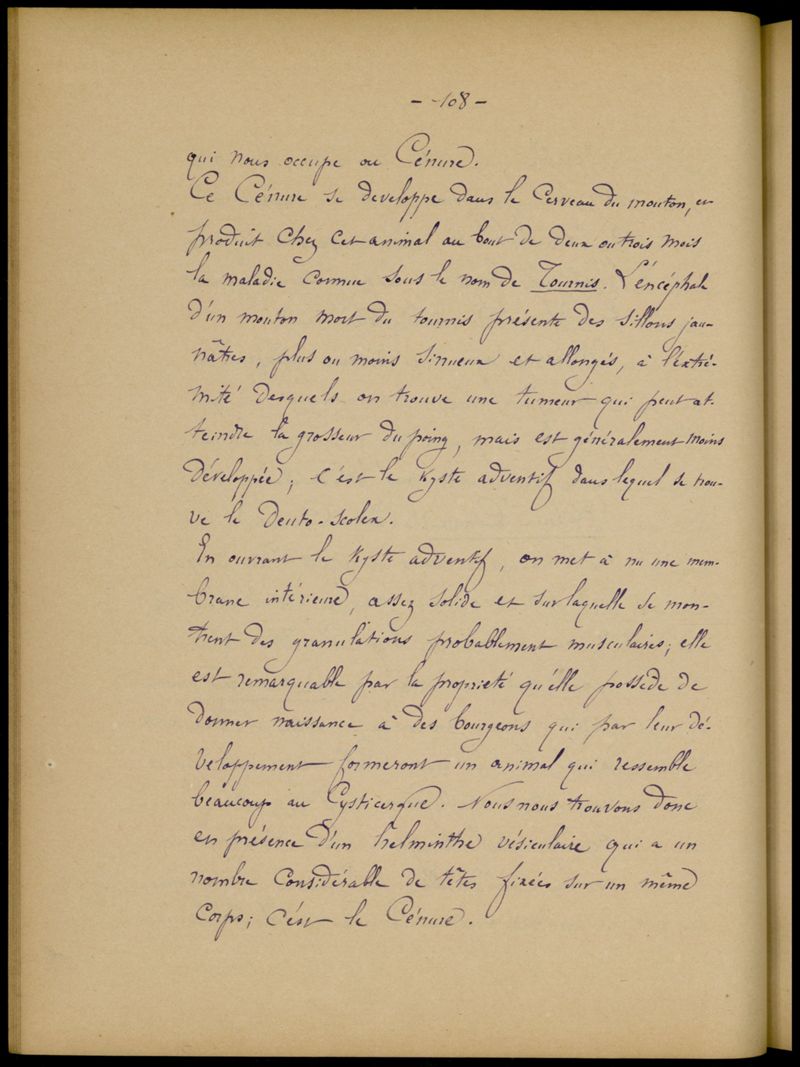 - 108 -
qui nous occupe ou Cénure.
Ce Cénure se developpe dans le Cerveau du mouton, et
produit chez cet animal au bout de deux ou trois mois
la maladie connue sous le nom de Tournis. L'encéphale
d'un mouton mort du tournis présente des sillons jau-
nâtres, plus ou moins sinueux et allongés, à l'extré-
mité desquels on trouve une tumeur qui peut at-
teindre la grosseur du poing, mais est généralement moins
développée; c'est le Kyste adventif dans lequel se trou-
ve le Deuto-scolex.
En ouvrant le Kyste adventif, on met à nu une mem-
brane intérieure, assez solide et sur laquelle se mon-
trent des granulations probablement musculaires; elle
est remarquable par la proprieté qu'elle possède de
donner naissance à des bourgeons qui par leur dé-
veloppement formeront un animal qui ressemble
beaucoup au Cysticerque. Nous nous trouvons donc
en présence d'un helminthe vésiculaire qui a un
nombre considérable de têtes fixées sur un même
corps; c'est le Cénure.